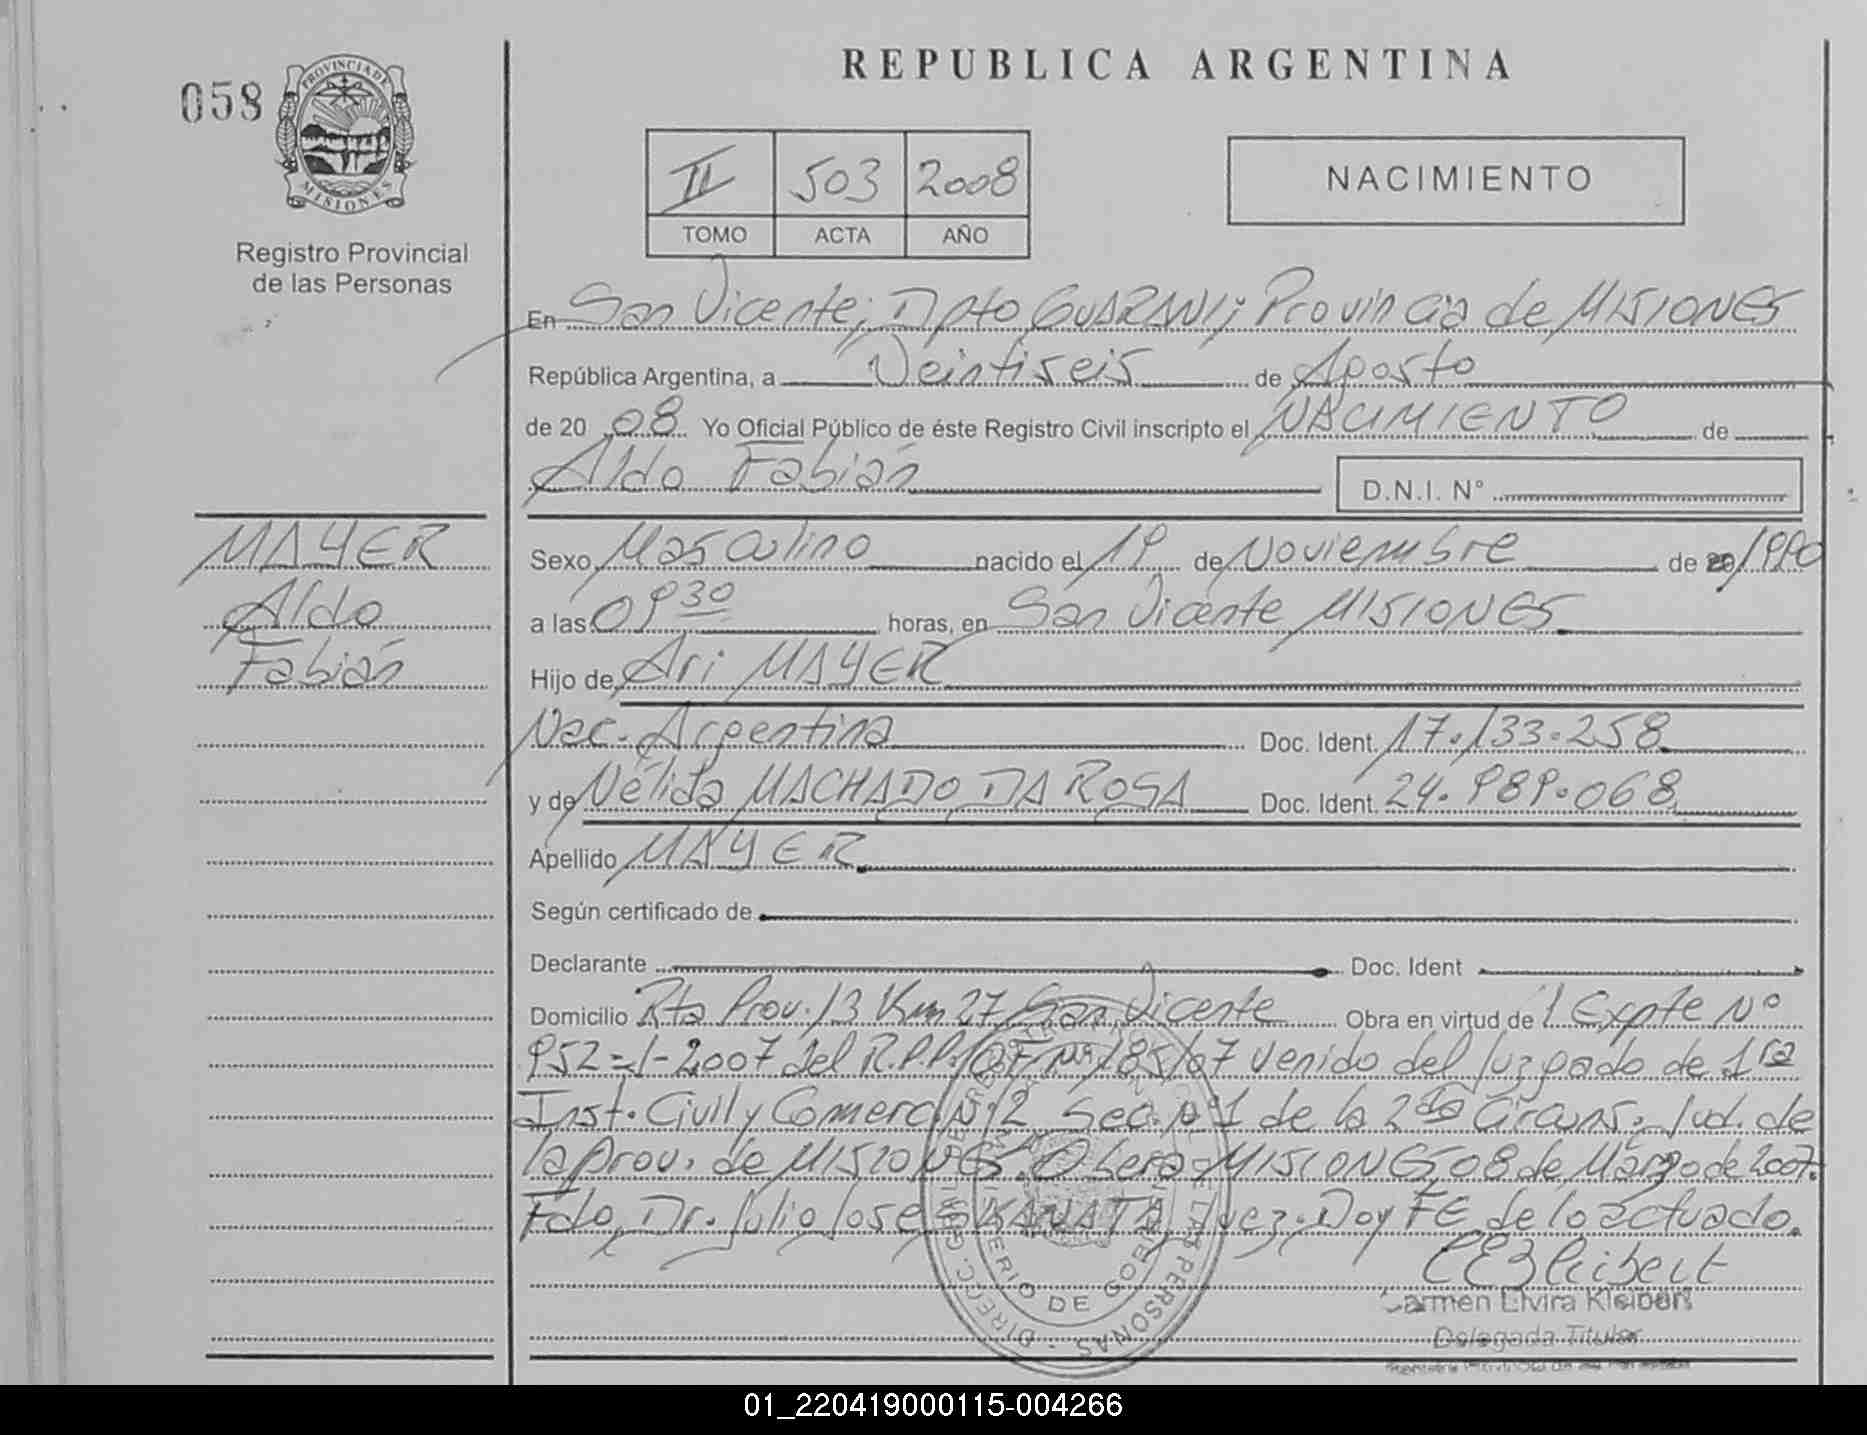 REPUBLICA ARGENTINA
058
PROVINCIA DE MISIONES
Registro Provincial
de las Personas
II 503 2008
TOMO ACTA AÑO
NACIMIENTO
En San Vicente; Dpto GUARANI; Provincia de MISIONES
República Argentina, a Veintiseis de Agosto
de 20 08 Yo Oficial Público de éste Registro Civil inscripto el NACIMIENTO de
Aldo Fabián D.N.I. N°
MAYER
Aldo
Fabián
Sexo Masculino nacido el 19 de Noviembre de 20 1990
a las 09 30 horas, en San Vicente MISIONES
Hijo de Ari MAYER
Nac. Argentina Doc. Ident. 17.133.258
y de Nélida MACHADO DA ROSA Doc. Ident. 24.989.068
Apellido MAYER
Según certificado de
Declarante Doc. Ident
Domicilio Rta Prov. 13 Km 27 San Vicente Obra en virtud de l Expte N°
952=I-2007 del R.P.P. OF N° 185/07 venido del Juzgado de 1ra
Inst. Civil y Comerc N°2 Sec. N°1 de la 2da Circuns. Jud. de
la Prov. de MISIONES. Oberá-MISIONES, 08 de Márzo de 2007.
Fdo. Dr. Julio José SKANATA Juez. Doy FE de lo actuado.
CEKleibert
Carmen Elvira Kleibert
Delegada Titular
DE LAS PERSONAS
MINISTERIO DE GOB
01_220419000115-004266